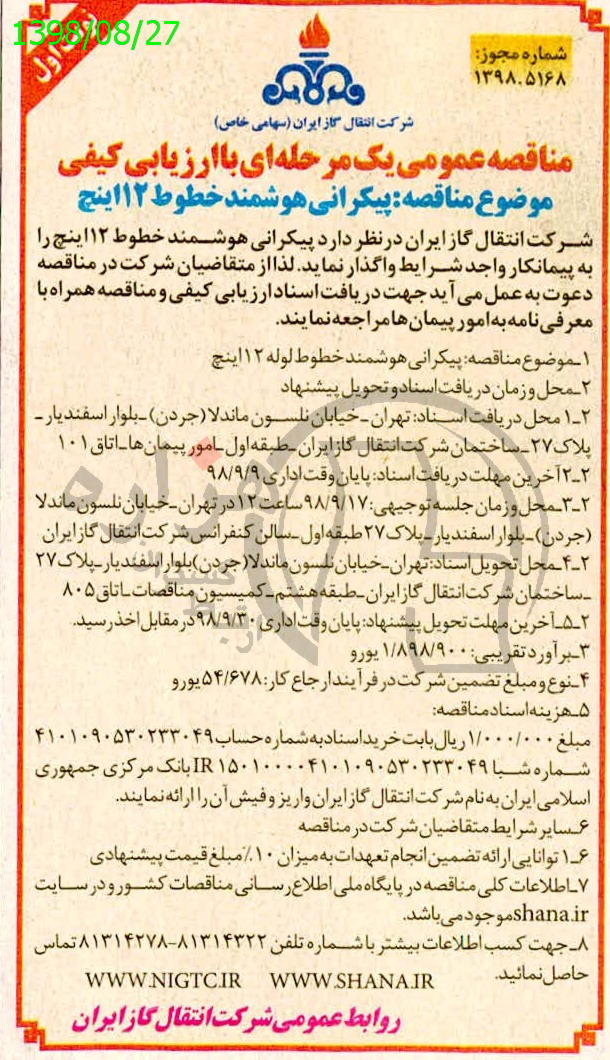 1398/08/27
نوبت اول
شماره مجوز:
۱۳۹۸.۵۱۶۸
شرکت انتقال گاز ایران (سهامی خاص)
مناقصه عمومی یک مرحله‌ای با ارزیابی کیفی
موضوع مناقصه: پیکرانی هوشمند خطوط ۱۲ اینچ
شرکت انتقال گاز ایران در نظر دارد پیکرانی هوشمند خطوط ۱۲ اینچ را
به پیمانکار واجد شرایط واگذار نماید. لذا از متقاضیان شرکت در مناقصه
دعوت به عمل می آید جهت دریافت اسناد ارزیابی کیفی و مناقصه همراه با
معرفی نامه به امور پیمان ها مراجعه نمایند.
۱ـ موضوع مناقصه: پیکرانی هوشمند خطوط لوله ۱۲ اینچ
۲ـ محل و زمان دریافت اسناد و تحویل پیشنهاد
۲ـ۱ محل دریافت اسناد: تهران ـ خیابان نلسون ماندلا (جردن) ـ بلوار اسفندیار ـ
پلاک ۲۷ ـ ساختمان شرکت انتقال گاز ایران ـ طبقه اول ـ امور پیمان ها ـ اتاق ۱۰۱
۲ـ۲ آخرین مهلت دریافت اسناد: پایان وقت اداری ۹۸/۹/۹
۲ـ۳ـ محل و زمان جلسه توجیهی: ۹۸/۹/۱۷ ساعت ۱۲ در تهران ـ خیابان نلسون ماندلا
(جردن) ـ بلوار اسفندیار ـ پلاک ۲۷ طبقه اول ـ سالن کنفرانس شرکت انتقال گاز ایران
۲ـ۴ـ محل تحویل اسناد: تهران ـ خیابان نلسون ماندلا (جردن) بلوار اسفندیار ـ پلاک ۲۷
ـ ساختمان شرکت انتقال گاز ایران ـ طبقه هشتم ـ کمیسیون مناقصات ـ اتاق ۸۰۵
۲ـ۵ـ آخرین مهلت تحویل پیشنهاد: پایان وقت اداری ۹۸/۹/۳۰ در مقابل اخذ رسید.
۳ـ برآورد تقریبی: ۱/۸۹۸/۹۰۰ یورو
۴ـ نوع و مبلغ تضمین شرکت در فرآیند ارجاع کار: ۵۴/۶۷۸ یورو
۵ـ هزینه اسناد مناقصه:
مبلغ ۱/۰۰۰/۰۰۰ ریال بابت خرید اسناد به شماره حساب ۴۱۰۱۰۹۰۵۳۰۲۳۳۰۴۹
شماره شبا IR ۱۵۰۱۰۰۰۰۴۱۰۱۰۹۰۵۳۰۲۳۳۰۴۹ بانک مرکزی جمهوری
اسلامی ایران به نام شرکت انتقال گاز ایران واریز و فیش آن را ارائه نمایند.
۶ـ سایر شرایط متقاضیان شرکت در مناقصه
۶ـ۱ توانایی ارائه تضمین انجام تعهدات به میزان ۱۰٪ مبلغ قیمت پیشنهادی
۷ـ اطلاعات کلی مناقصه در پایگاه ملی اطلاع رسانی مناقصات کشور و در سایت
shana.ir موجود می باشد.
۸ـ جهت کسب اطلاعات بیشتر با شماره تلفن ۸۱۳۱۴۳۲۲-۸۱۳۱۴۲۷۸ تماس
حاصل نمائید.
WWW.NIGTC.IR WWW.SHANA.IR
روابط عمومی شرکت انتقال گاز ایران